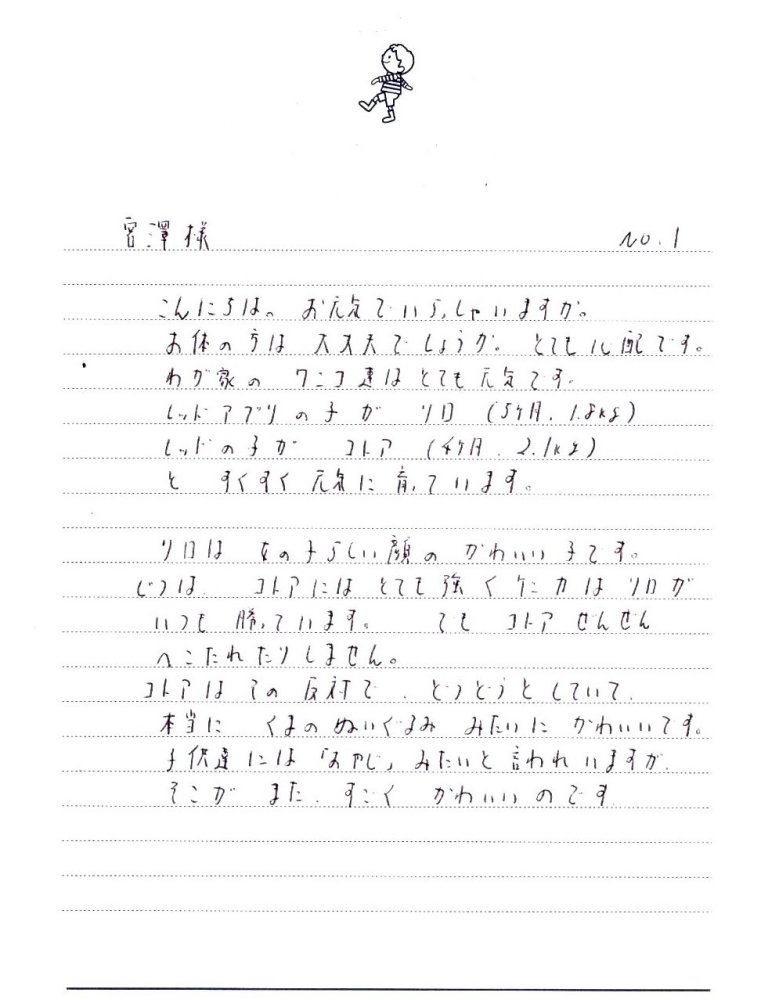 宮澤様 No.1
こんにちは。お元気でいらっしゃいますか。
お体の方は大丈夫でしょうか。とても心配です。
わが家のワンコ達はとても元気です。
レッドアプリの子が リロ (5ケ月、1.8kg)
レッドの子が コトア (4ケ月、2.1kg)
と すくすく元気に育っています。
リロは女の子らしい顔のかわいい子です。
じつは、コトアにはとても強くケンカはリロが
いつも勝っています。 でも コトア ぜんぜん
へこたれたりしません。
コトアはその反対で、どうどうとしていて、
本当に くまのぬいぐるみ みたいに かわいいです。
子供達には「おやじ」みたいと言われいますが、
そこが また、すごく かわいいのです